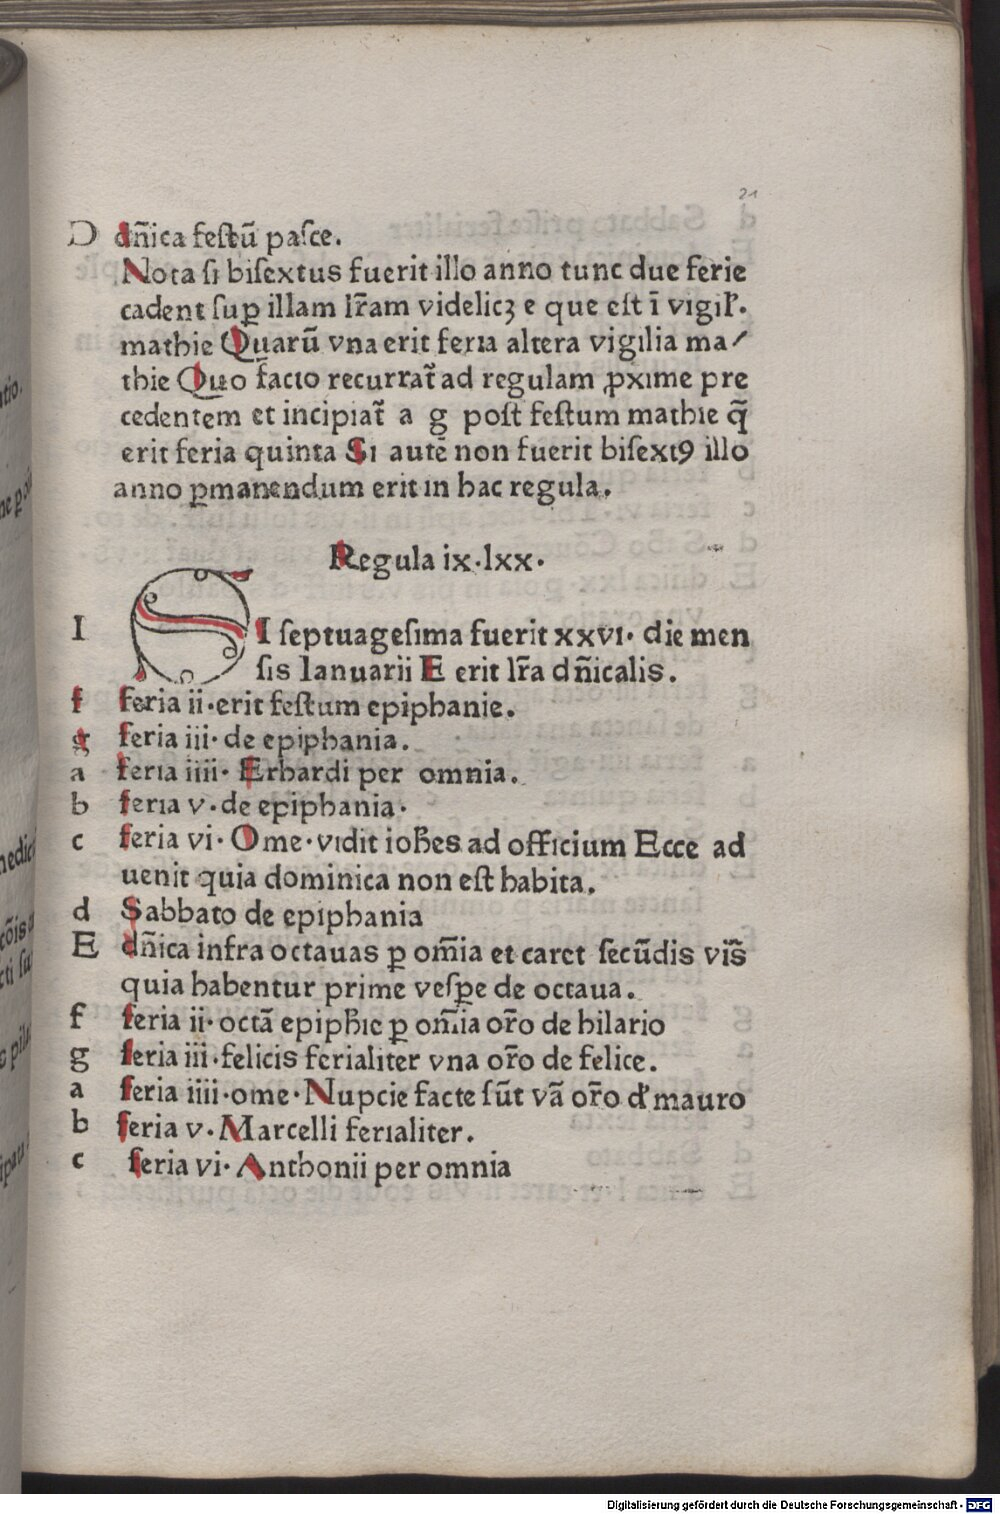 21
D dn̄ica festū pasce.
Nota si bisextus fuerit illo anno tunc due ferie
cadent suꝑ illam lr̄am videlicꝫ e que est ī vigil̓.
mathie Quarū vna erit feria altera vigilia ma/
thie Quo facto recurrat̄ ad regulam ꝓxime pre
cedentem et incipiat̄ a g post festum mathie q̄
erit feria quinta Si autē non fuerit bisextꝰ illo
anno ꝑmanendum erit in hac regula.
Regula ix·lxx·
I SI septuagesima fuerit xxvi· die men
sis Ianuarii E erit lr̄a dn̄icalis.
f feria ii·erit festum epiphanie.
g feria iii· de epiphania.
a feria iiii· Erhardi per omnia.
b feria v·de epiphania·
c feria vi· Ome·vidit ioh̄es ad officium Ecce ad
uenit quia dominica non est habita.
d Sabbato de epiphania
E dn̄ica infra octauas ꝑ om̄ia et caret secūdis vis̄
quia habentur prime vesꝑe de octaua.
f feria ii· octā epiph̄ie ꝑ om̄ia or̄o de hilario
g feria iii·felicis ferialiter vna or̄o de felice.
a feria iiii·ome·Nupcie facte sūt vā or̄o d̓ mauro
b feria v·Marcelli ferialiter.
c feria vi· Anthonii per omnia
Digitalisierung gefördert durch die Deutsche Forschungsgemeinschaft - DFG